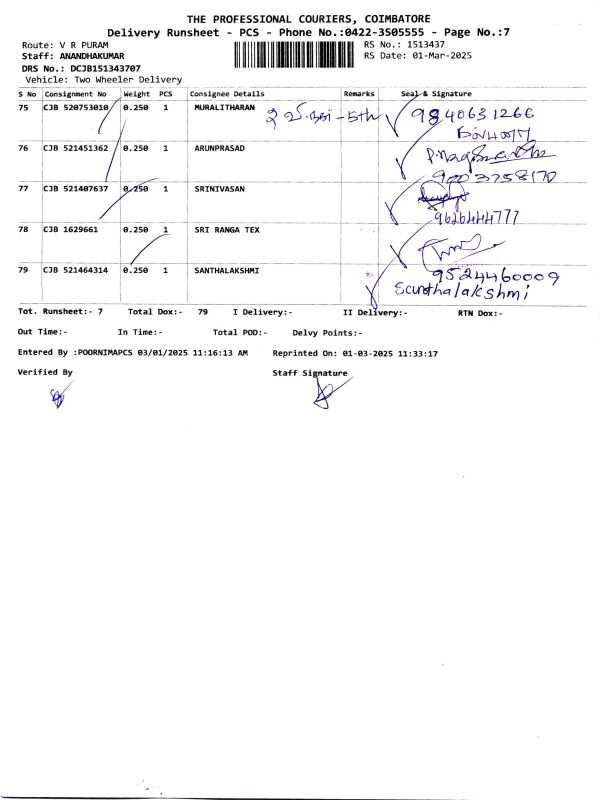 THE PROFESSIONAL COURIERS, COIMBATORE
Delivery Runsheet - PCS - Phone No.:0422-3505555 - Page No.:7
Route: V R PURAM RS No.: 1513437
Staff: ANANDHAKUMAR RS Date: 01-Mar-2025
DRS No.: DCJB151343707
Vehicle: Two Wheeler Delivery
S No Consignment No Weight PCS Consignee Details Remarks Seal & Signature
75 CJB 520753010 0.250 1 MURALITHARAN 9840631266
76 CJB 521451362 0.250 1 ARUNPRASAD
9003758170
77 CJB 521407637 0.250 1 SRINIVASAN
9626444777
78 CJB 1629661 0.250 1 SRI RANGA TEX
79 CJB 521464314 0.250 1 SANTHALAKSHMI 9524460009
Santhalakshmi
Tot. Runsheet:- 7 Total Dox:- 79 I Delivery:- II Delivery:- RTN Dox:-
Out Time:- In Time:- Total POD:- Delvy Points:-
Entered By :POORNIMAPCS 03/01/2025 11:16:13 AM Reprinted On: 01-03-2025 11:33:17
Verified By Staff Signature